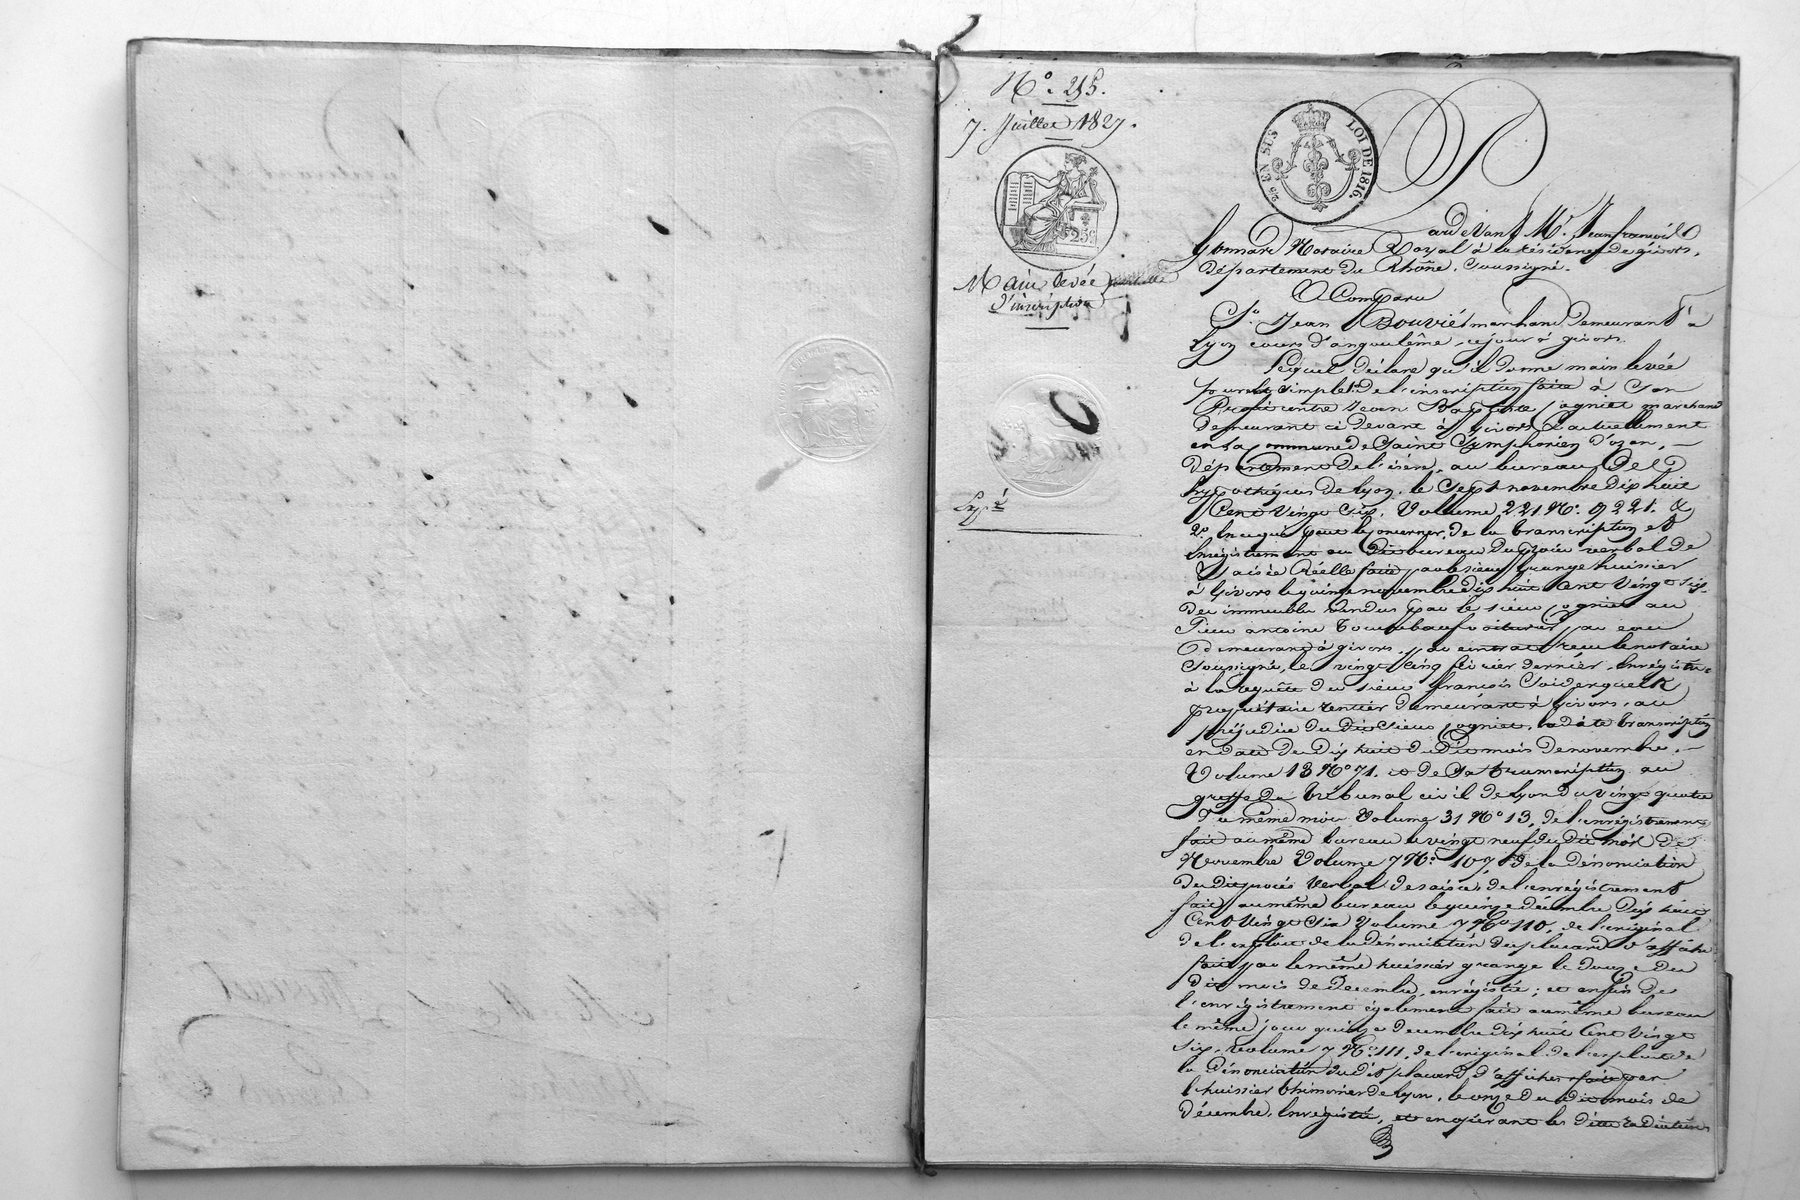 N.° 215.
7. Juillet 1827.
25 EN SUS
LOI DE 1816.
25c
Main levée
d'inscription
Exp.é
Pardevant M.e Jean françois
Gonnard Notaire Royal à la résidence de givors,
département du Rhône, soussigné.
A Comparu
S.r Jean Bouvié marchand, demeurant à
Lyon cours d'angoulême, ce jour à givors.
Lequel déclare qu'il donne main levée
pure & simple 1.° de l'inscription faite à son
Profit contre Jean Baptiste pagniet marchand
demeurant ci devant à givors & actuellement
en la commune de Saint Symphorien d'ozon,
département de l'isère, au bureau des
hypothèques de Lyon, le sept novembre dix huit
Cent vingt six, Volume 221 N.° 9221. &
2.° En ce qui peut le concerner, de la transcription et
Enregistrement au dit bureau du procès verbal de
Saisie Réelle faite par le sieur grange huissier
à Givors le quinze novembre dix huit cent vingt six,
des immeubles vendus par le sieur pagniet au
Sieur antoine voiturier par eau
demeurant à givors, par contrat reçu le notaire
Soussigné, le vingt cinq février dernier, Enregistré
à la requête du sieur françois
propriétaire rentier demeurant à Givors, au
préjudice du dit sieur pagniet, la dite transcription
en date du dix huit du dit mois de novembre,
Volume 13 N.° 71. & de sa transcription au
greffe du tribunal civil de Lyon du vingt quatre
du même mois Volume 31 N.° 13, de l'enregistrement
fait au même bureau le vingt neuf du dit mois de
Novembre Volume 7 N.° 107 de la dénonciation
du dit procès verbal de saisie; de l'enregistrement
fait au même bureau le quinze décembre dix huit
Cent vingt six Volume 7 N.° 110, de l'original
de l'exploit de la dénonciation du placard d'affiche
fait par le même huissier grange le douze du
dit mois de Décembre, enregistré; et enfin de
l'enregistrement également fait au même bureau
le même jour quinze décembre dix huit Cent vingt
six, Volume 7 N.° 111, de l'original de l'exploit de
la dénonciation du dit placard d'affiches fait par
l'huissier thimonier de Lyon, le onze du dit mois de
décembre, Enregistré, et en opérant les dites radiations